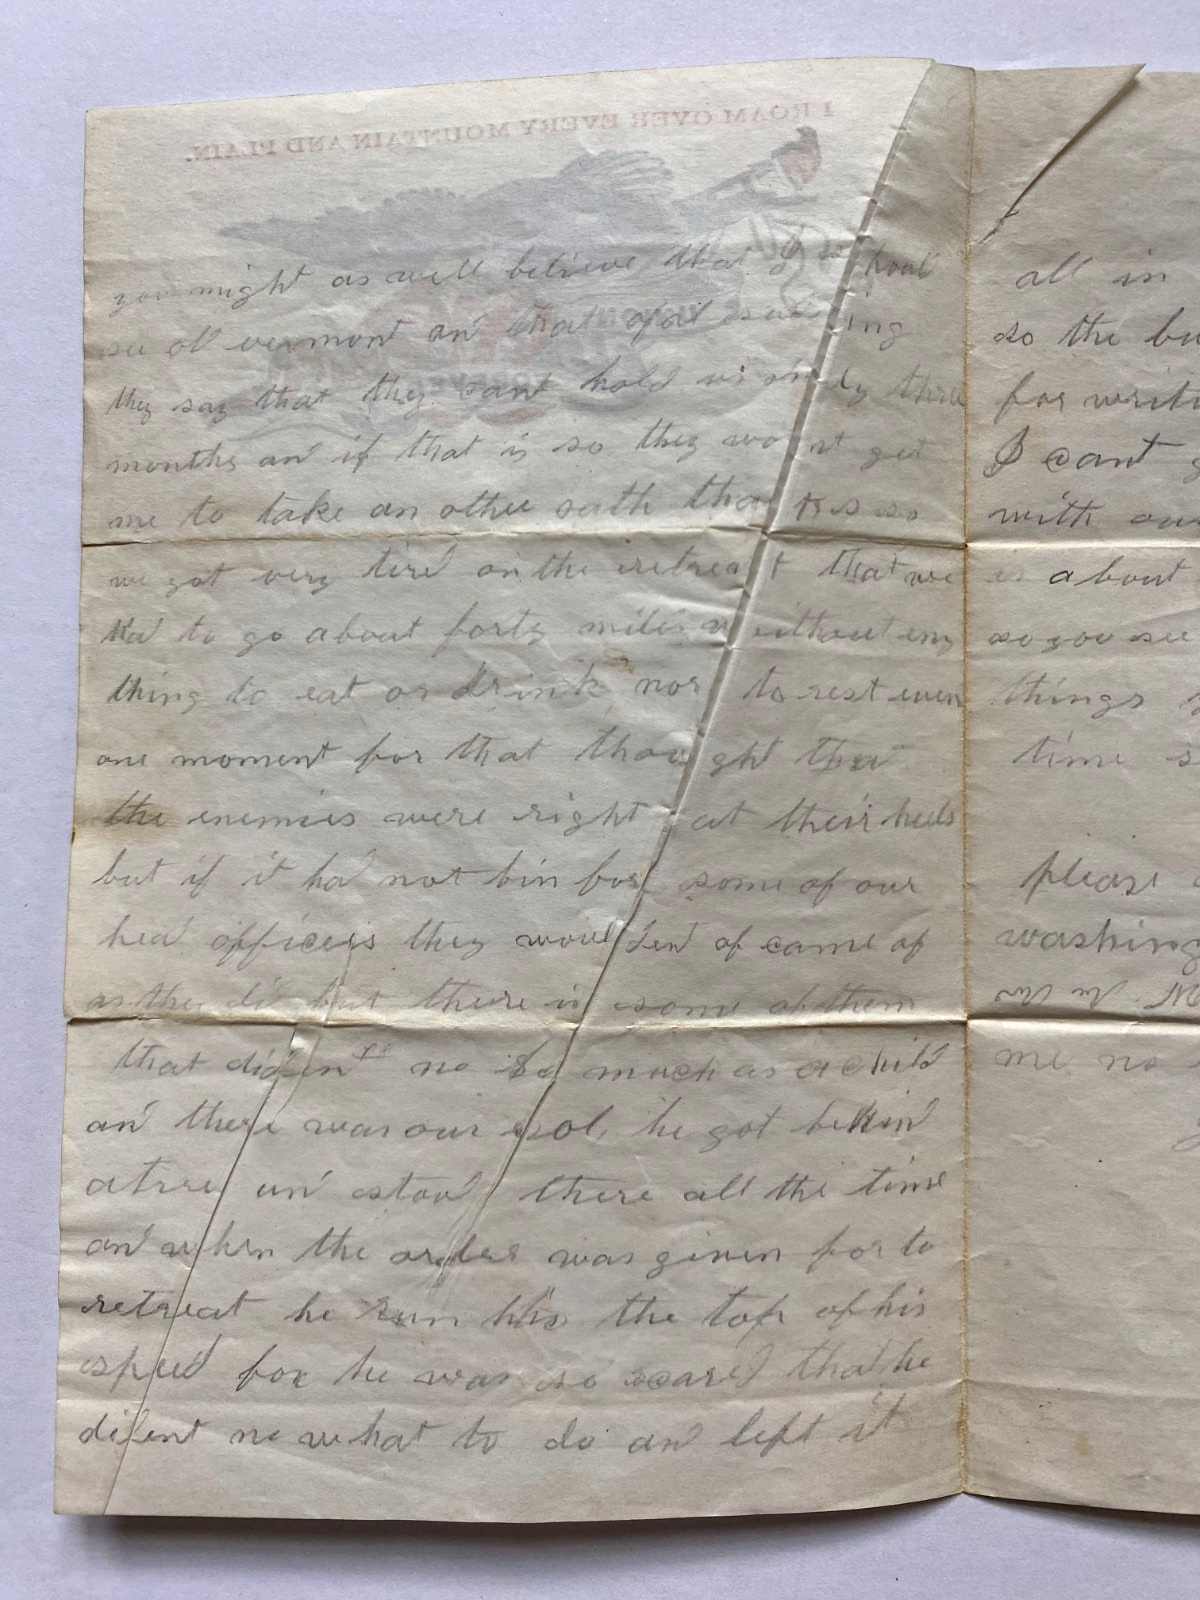 I ROAM OVER EVERY MOUNTAIN AND PLAIN.
you might as well believe that I shoul
see ol vermon an that
they say that they cant hold us only three
months an if that is so they wount get
me to take an other oath
we got very tired on the retreat that we
had to go about forty miles without eny
thing to eat or drink nor to rest even
one moment for that thought that
the enemies were right at their heels
but if it had not bin for some of our
hed officers they woulden of came of
as they did but there is some of them
that diden no so much as a child
and there was our col. he got behind
a tree an stood there all the time
an when the order was given for to
retreat he run the top of his
speed for he was so scared that he
diden't no what to do and left it
all in
so the bu
for writi
I cant g
with our
is about
so you see
things
time s
please
washing
me no